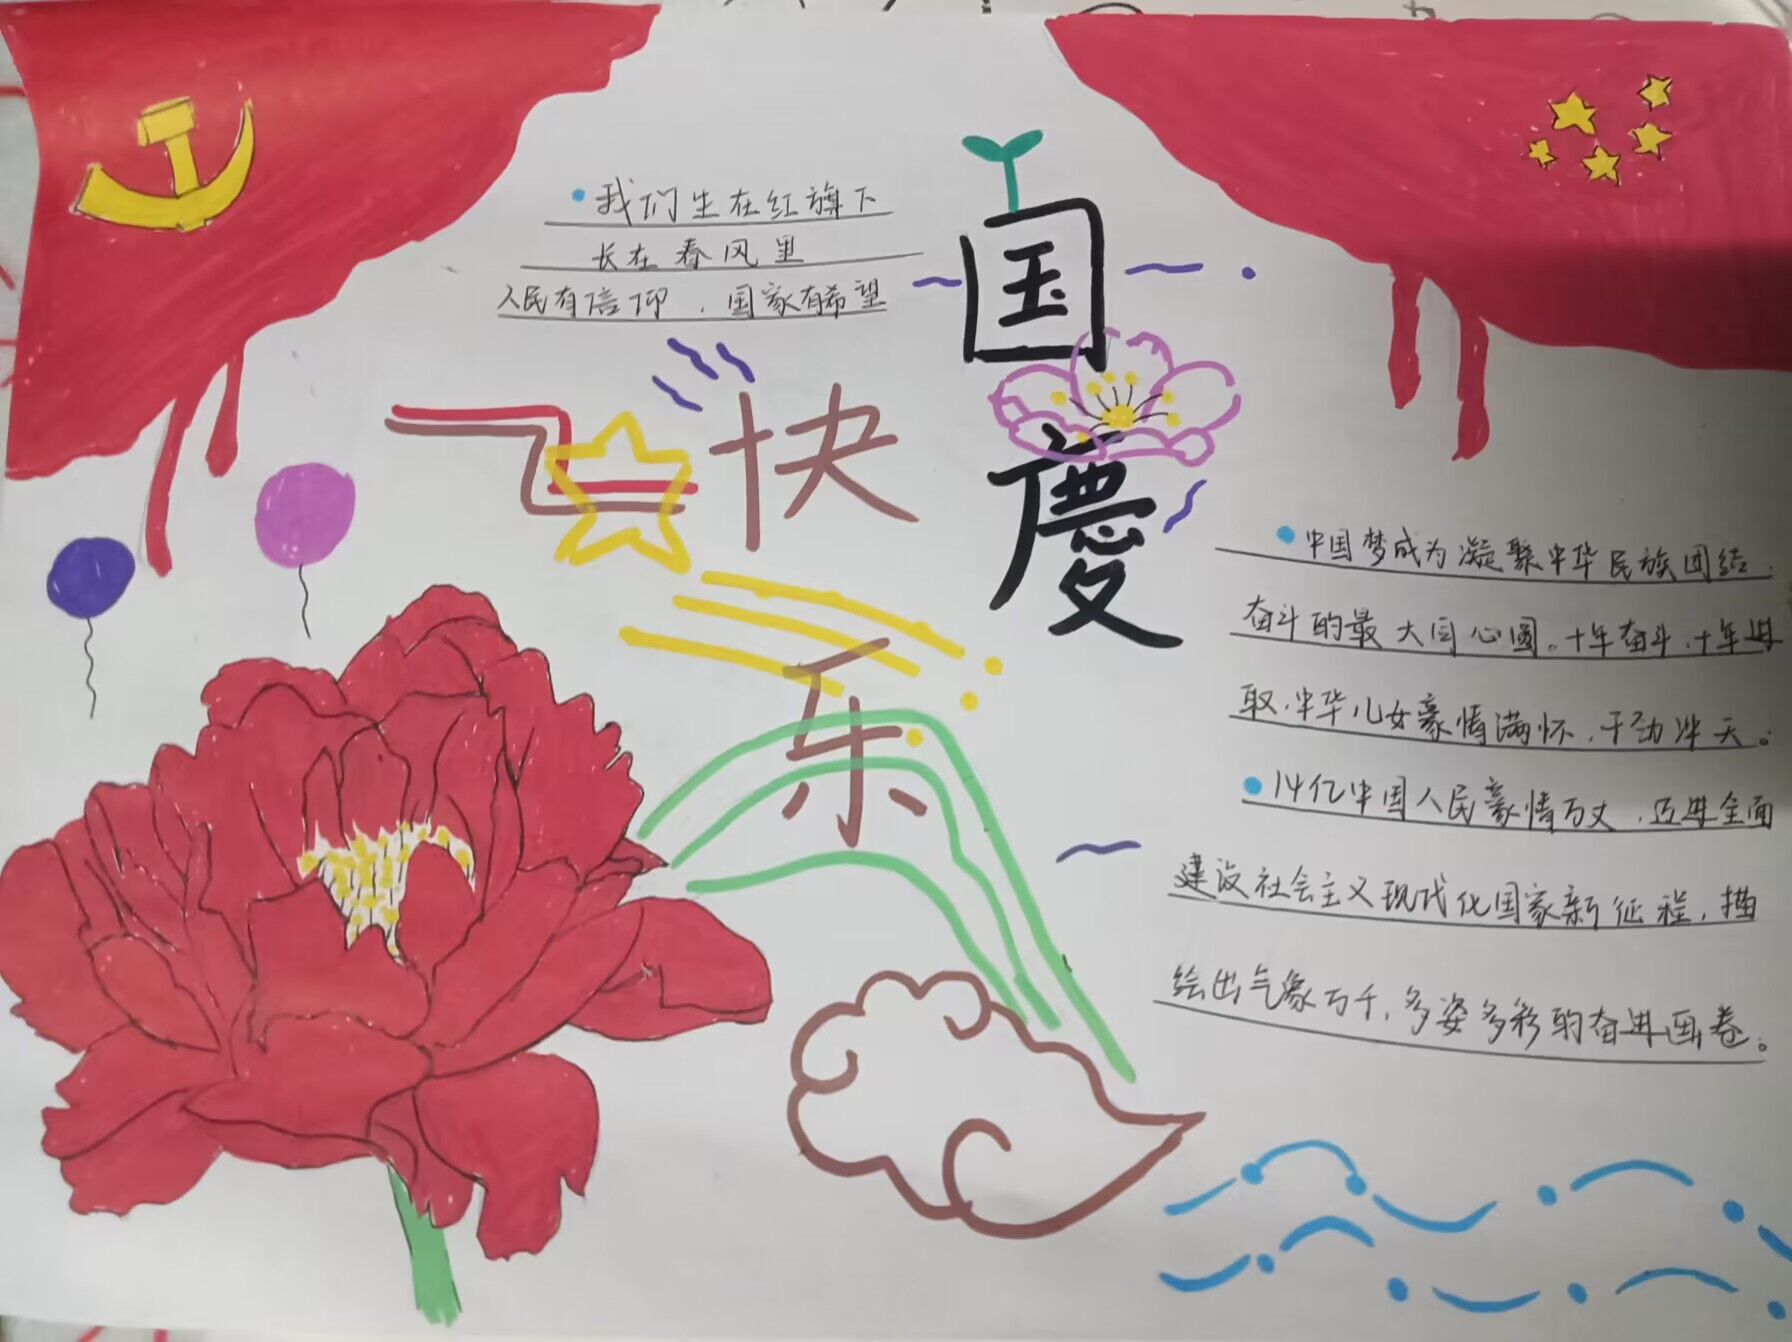 我们生在红旗下
长在春风里
人民有信仰,国家有希望
国慶
快乐
中国梦成为凝聚中华民族团结
奋斗的最大同心圆。十年奋斗,十年进
取,中华儿女豪情满怀,干劲冲天。
14亿中国人民豪情万丈,迈进全面
建设社会主义现代化国家新征程,描
绘出气象万千,多姿多彩的奋进画卷。